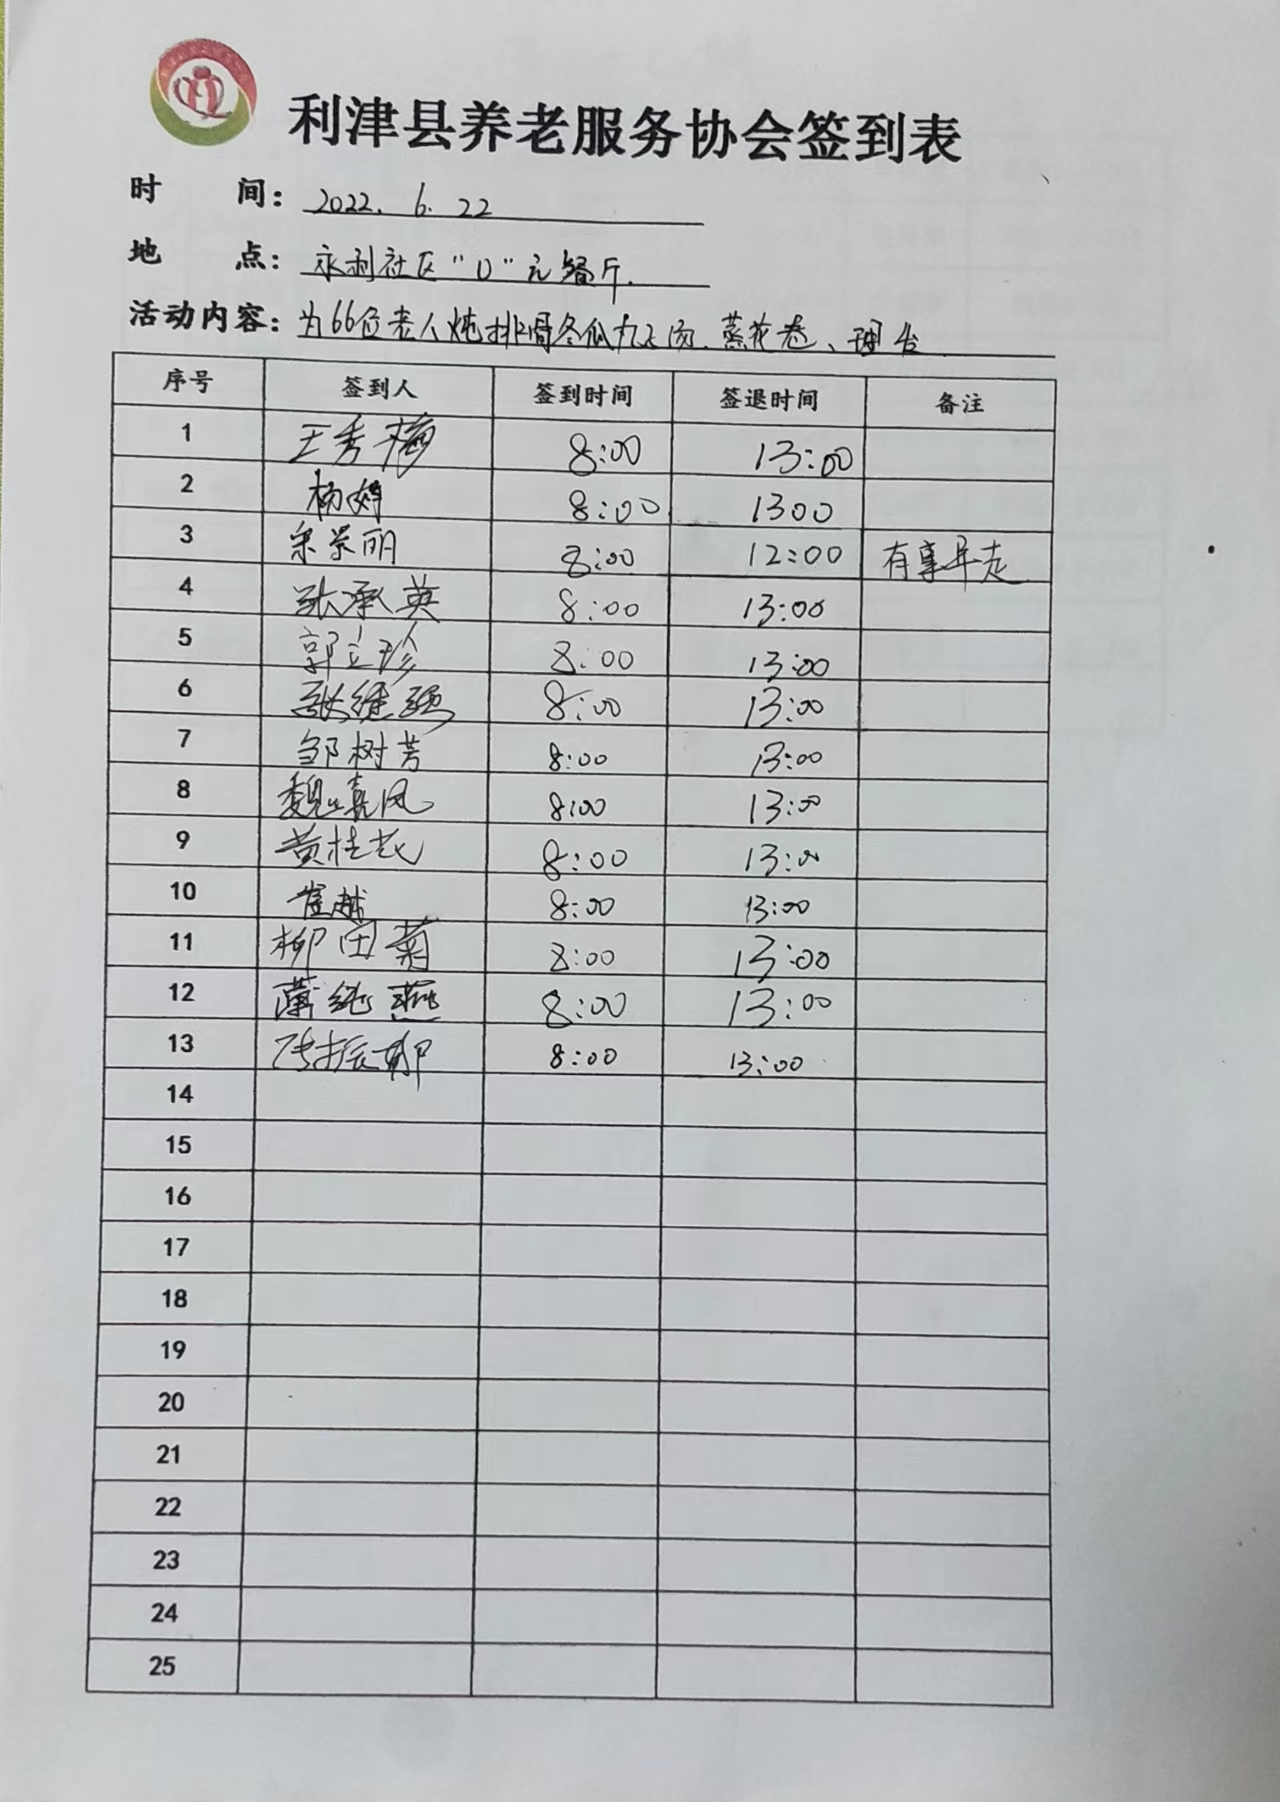 利津县养老服务协会签到表
时 间: 2022. 6. 22
地 点: 永利社区"0"元餐厅.
活动内容: 为66位老人炖排骨冬瓜丸子汤、蒸花卷、理台
序号 签到人 签到时间 签退时间 备注
1 王秀梅 8:00 13:00
2 杨婷 8:00 1300
3 宋景丽 8:00 12:00 有事早走
4 张承英 8:00 13:00
5 郭立珍 8:00 13:00
6 张继强 8:00 13:00
7 邹树芳 8:00 13:00
8 魏真风 8:00 13:00
9 黄桂花 8:00 13:00
10 崔越 8:00 13:00
11 柳田菊 8:00 13:00
12 纯燕 8:00 13:00
13 8:00 13:00
14
15
16
17
18
19
20
21
22
23
24
25